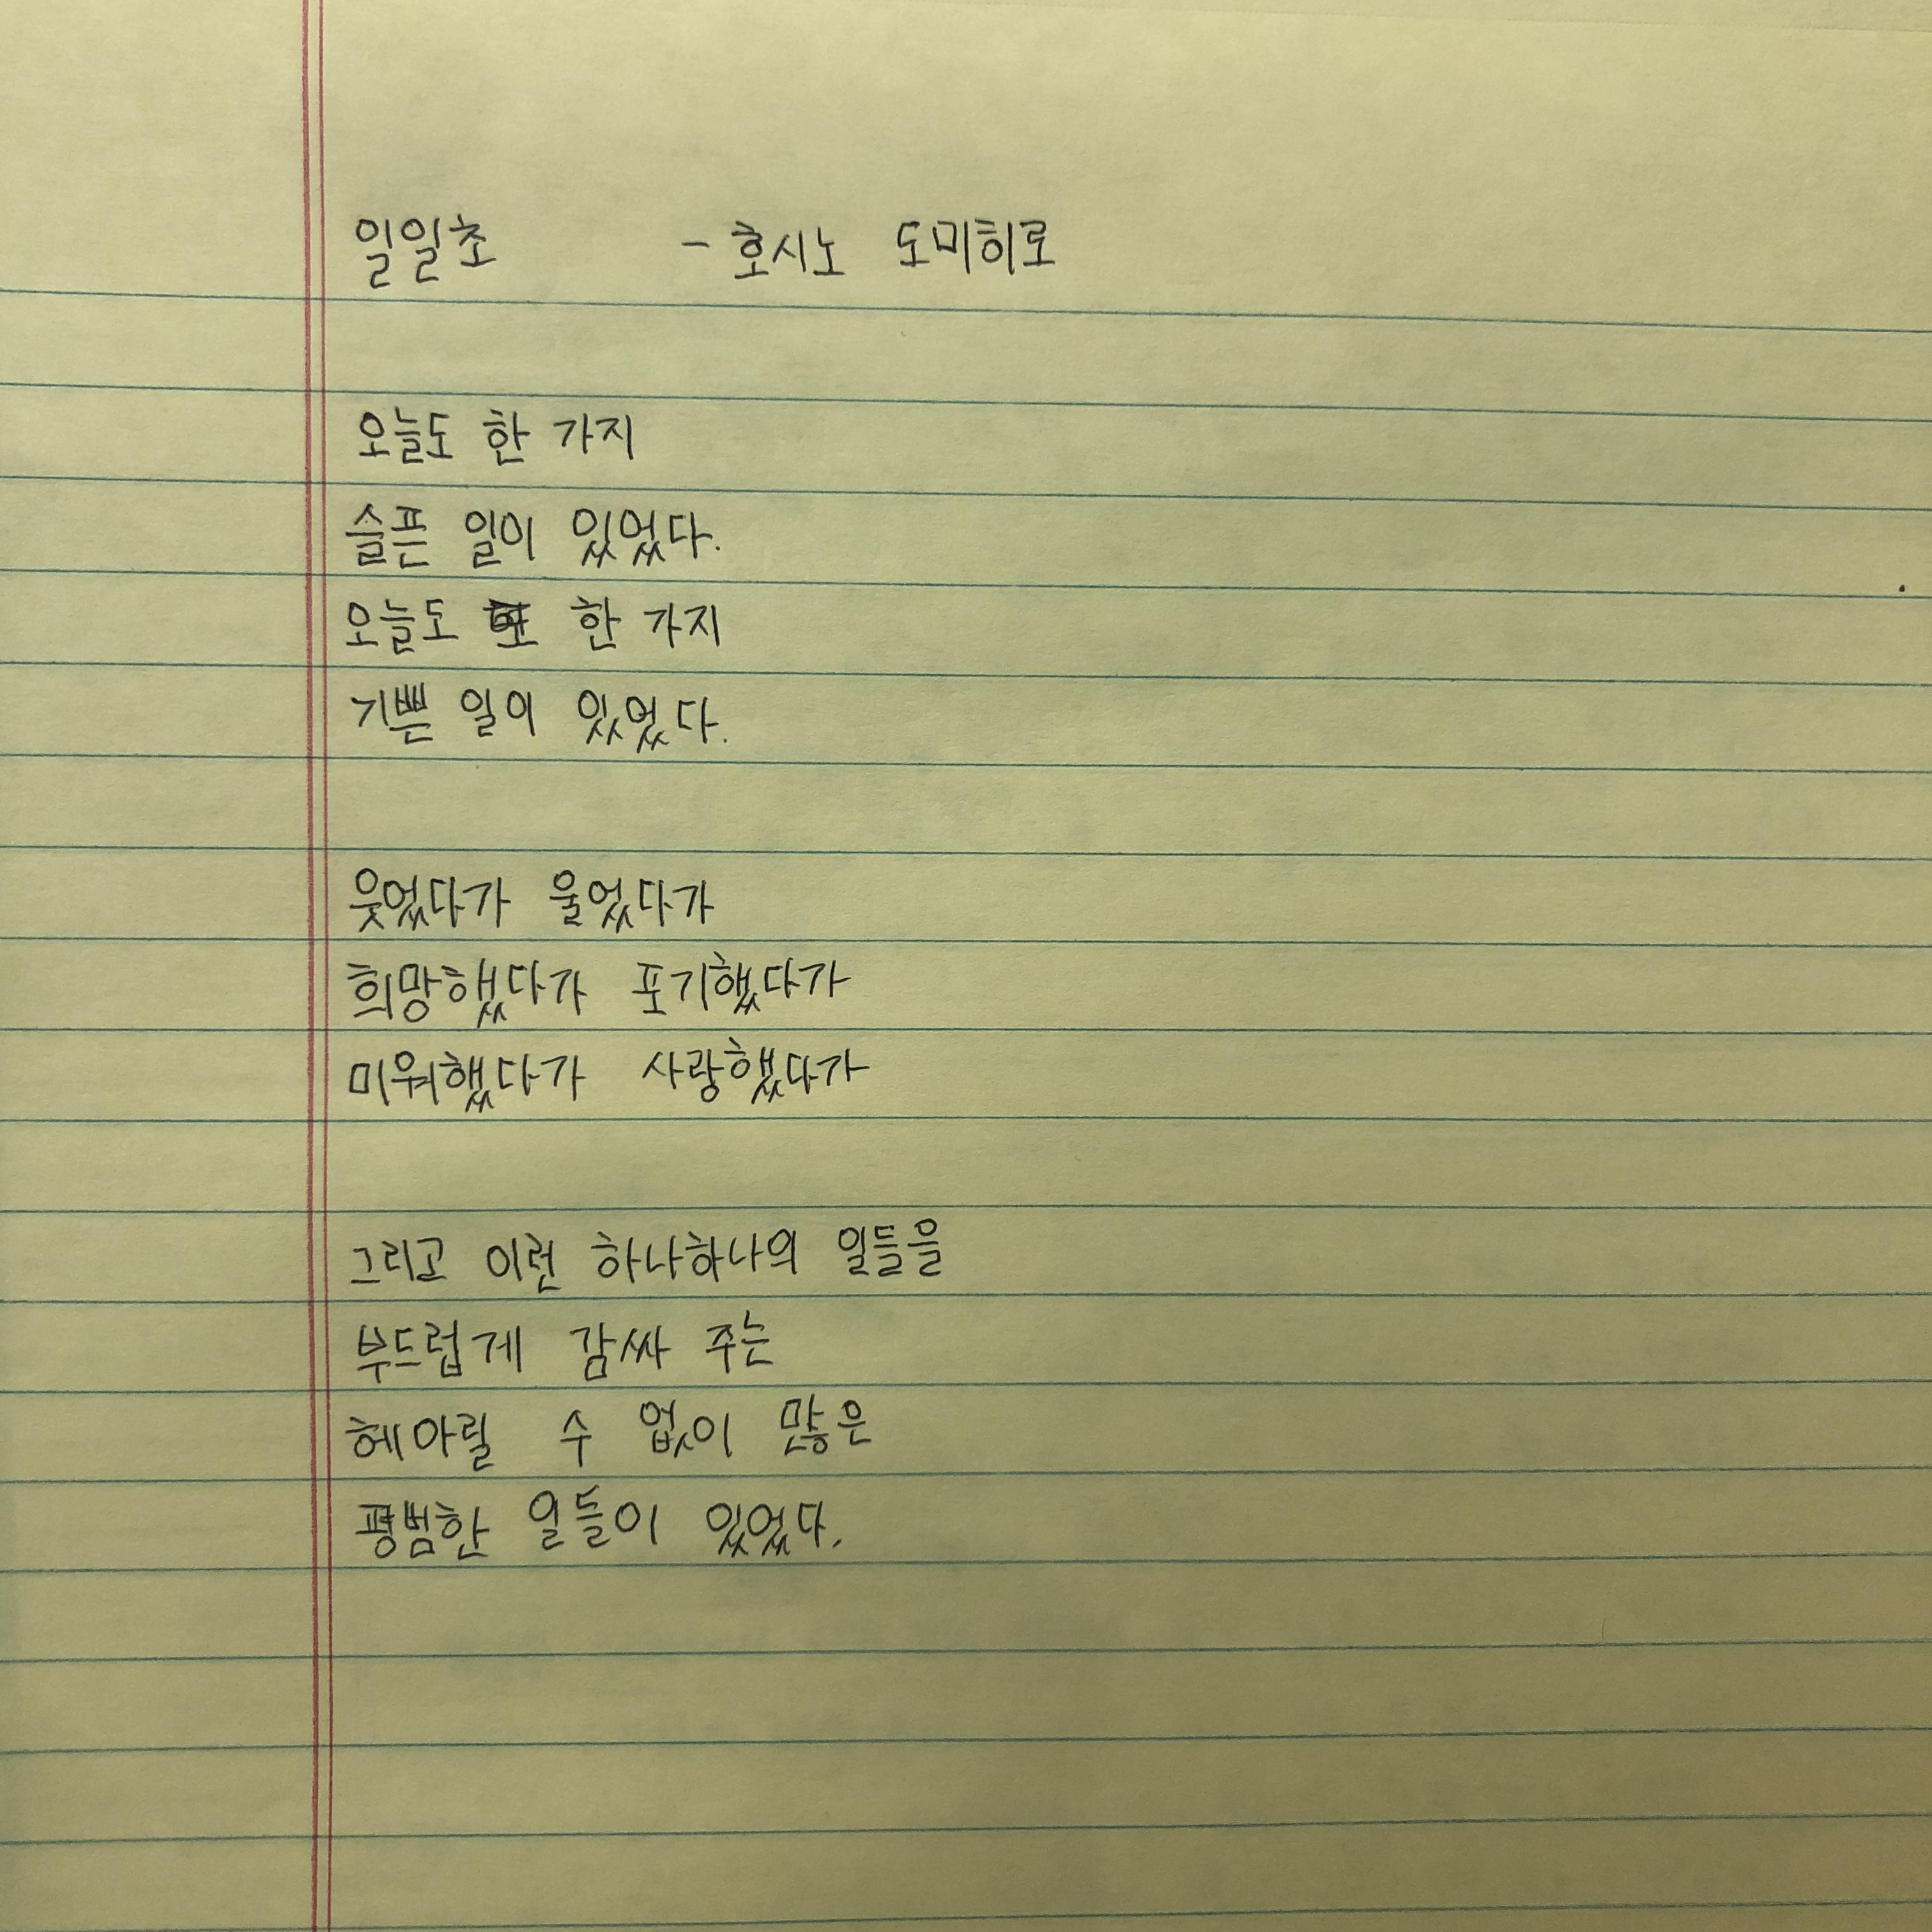 일일초 - 호시노 도미히로
오늘도 한 가지
슬픈 일이 있었다.
오늘도 또 한 가지
기쁜 일이 있었다.
웃었다가 울었다가
희망했다가 포기했다가
미워했다가 사랑했다가
그리고 이런 하나하나의 일들을
부드럽게 감싸 주는
헤아릴 수 없이 많은
평범한 일들이 있었다.